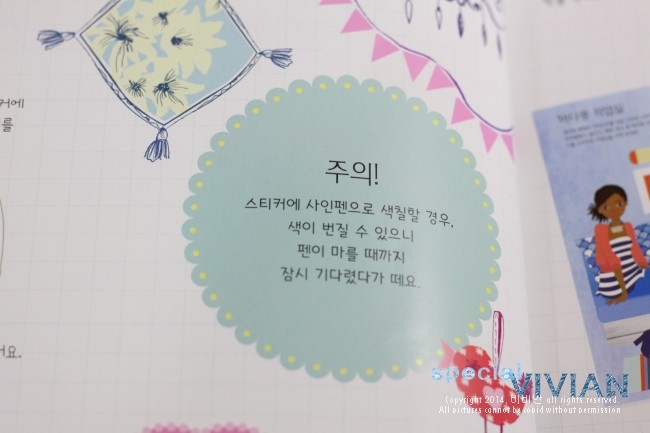 커에
를
주의!
스티커에 사인펜으로 색칠할 경우.
색이 번질 수 있으니
펜이 마를 때까지
잠시 기다렸다가 떼요.
요.
special VIVIAN
Copyright 2014. 비비안 all rights reserved
All pictures cannot be copid without permission